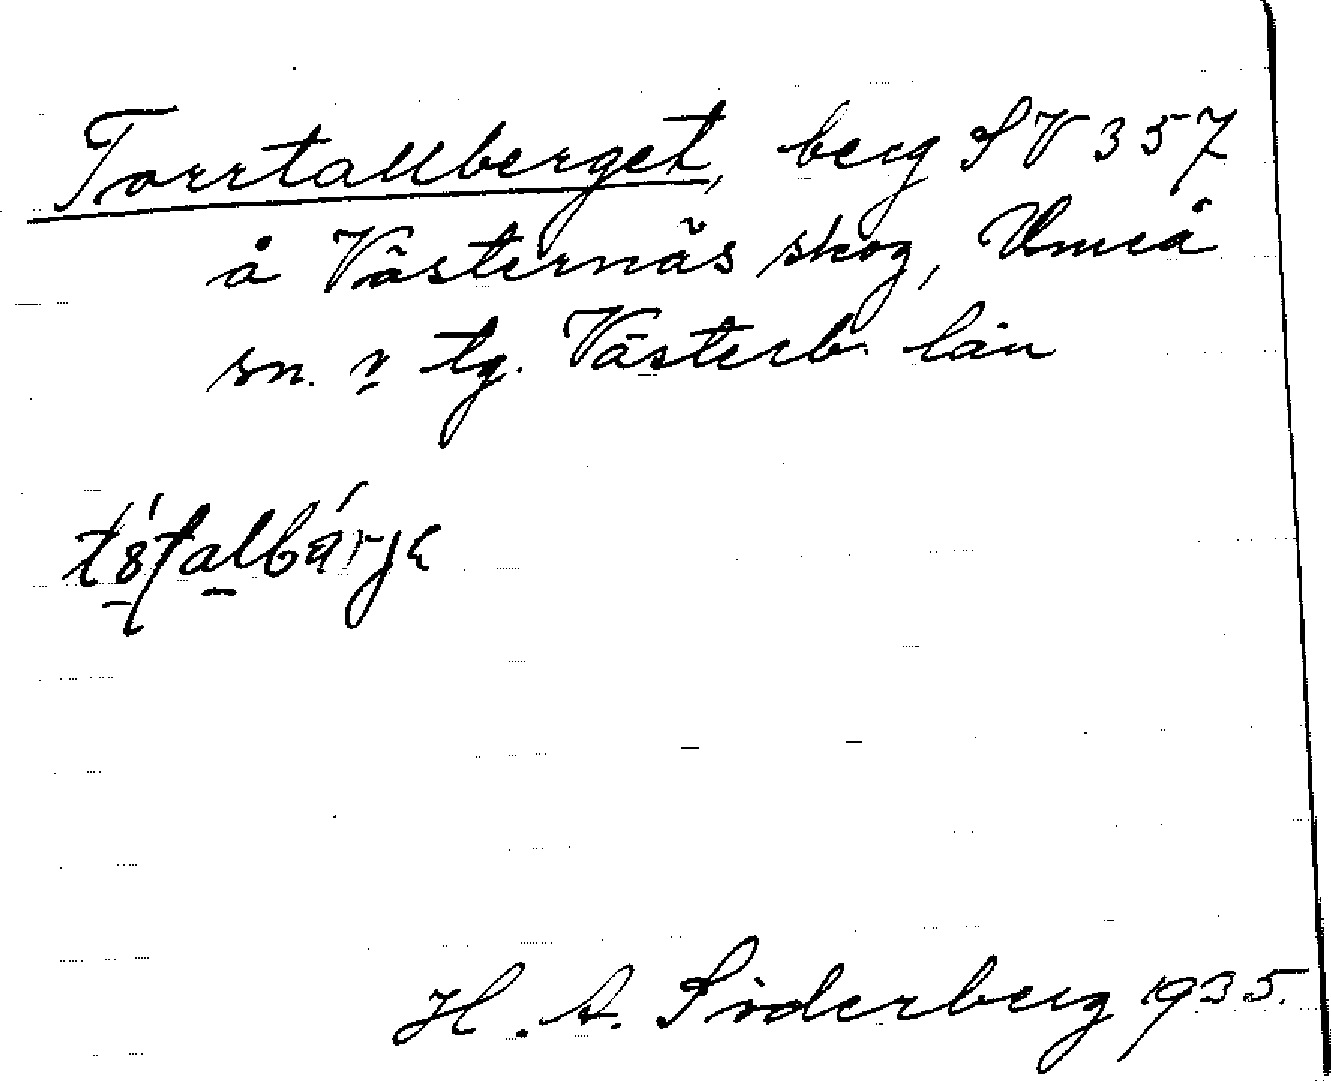 Torrtallberget, berg SV 357
å Västernäs skog, Umeå
sn. o tg. Västerb. län
H. A. Söderberg 1935.